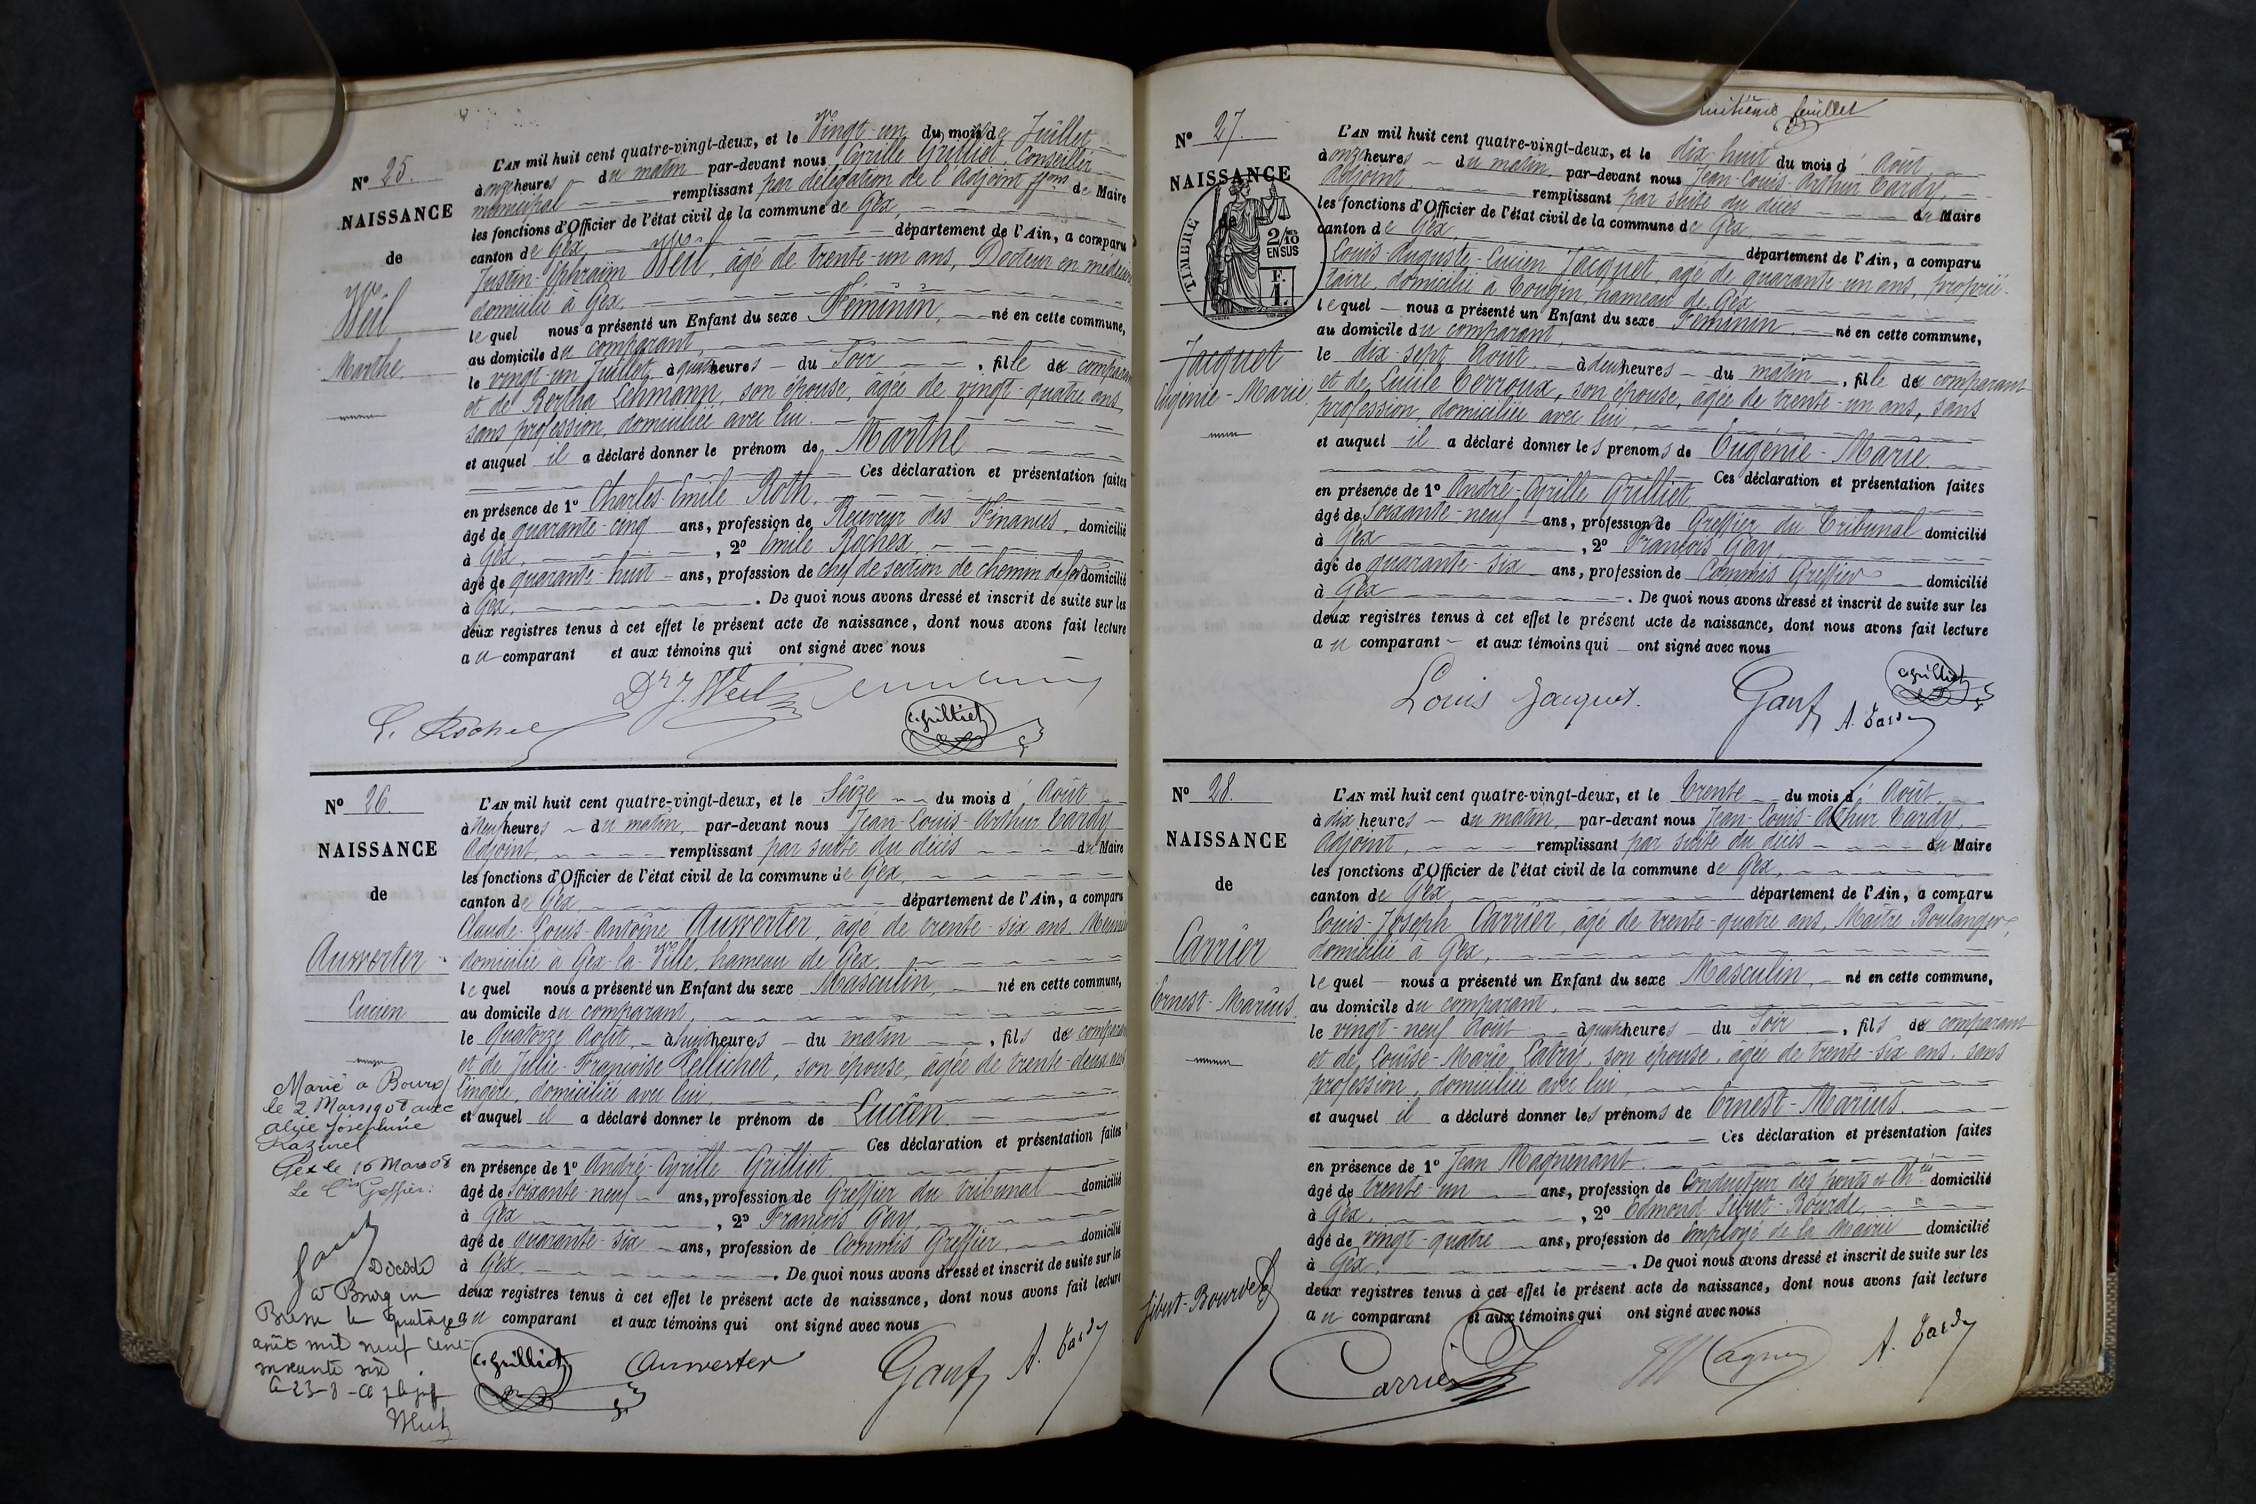 N° 25.
NAISSANCE
de
Weil
Marthe
L'AN mil huit cent quatre-vingt-deux, et le Vingt-un du mois de Juillet
à onze heures du matin par-devant nous Cyrille Grilliet, Conseiller
municipal remplissant par délégation de l'Adjoint ffons de Maire
les fonctions d'Officier de l'état civil de la commune de Gex,
canton de Gex département de l'Ain, a comparu
Justin-Ephraïm Weil, âgé de trente-un ans, Docteur en médecine
domicilié à Gex,
lequel nous a présenté un Enfant du sexe Féminin, né en cette commune,
au domicile du comparant,
le vingt-un Juillet, à quatre heures du Soir, fille du comparant
et de Bertha Lehmann, son épouse, âgée de vingt-quatre ans,
sans profession, domiciliée avec lui.
et auquel il a déclaré donner le prénom de Marthe
Ces déclaration et présentation faites
en présence de 1° Charles-Emile Roth,
âgé de quarante-cinq ans, profession de Receveur des Finances, domicilié
à Gex, 2° Emile Rochex,
âgé de quarante-huit ans, profession de chef de section de chemin de fer domicilié
à Gex. De quoi nous avons dressé et inscrit de suite sur les
deux registres tenus à cet effet le présent acte de naissance, dont nous avons fait lecture
au comparant et aux témoins qui ont signé avec nous
Dr J. Weil
E. Rochex
C. Grilliet
N° 26.
NAISSANCE
de
Auwerter
Lucien
Marié à Bourg
le 2 Mars 1908 avec
Alice Joséphine
Razurel
Gex le 16 Mars 08
Le Cis Greffier:
Décédé
à Bourg en
Bresse le quatorze
août mil neuf cent
soixante six
L'AN mil huit cent quatre-vingt-deux, et le Seize du mois d'Août
à neuf heures du matin, par-devant nous Jean-Louis-Arthur Tardy
Adjoint, remplissant par suite du décès du Maire
les fonctions d'Officier de l'état civil de la commune de Gex,
canton de Gex département de l'Ain, a comparu
Claude-Louis-Antoine Auwerter, âgé de trente-six ans, Meunier
domicilié à Gex-la-Ville, hameau de Gex,
lequel nous a présenté un Enfant du sexe Masculin, né en cette commune,
au domicile du comparant,
le Quatorze Août, à huit heures du matin, fils du comparant
et de Julie-Françoise Pellichet, son épouse, âgée de trente-deux ans
lingère, domiciliée avec lui
et auquel il a déclaré donner le prénom de Lucien
Ces déclaration et présentation faites
en présence de 1° André-Cyrille Grilliet
âgé de soixante-neuf ans, profession de Greffier du tribunal domicilié
à Gex, 2° François Gay,
âgé de quarante-six ans, profession de Commis Greffier, domicilié
à Gex. De quoi nous avons dressé et inscrit de suite sur les
deux registres tenus à cet effet le présent acte de naissance, dont nous avons fait lecture
au comparant et aux témoins qui ont signé avec nous
C. Grilliet Auwerter Gay A. Tardy
huitième feuillet
N° 27.
NAISSANCE
de
TIMBRE
2/10
EN SUS
F.
1.
Jacquet
Eugénie-Marie
L'AN mil huit cent quatre-vingt-deux, et le dix-huit du mois d'Août,
à onze heures du matin par-devant nous Jean-Louis-Arthur Tardy,
Adjoint remplissant par suite du décès du Maire
les fonctions d'Officier de l'état civil de la commune de Gex
canton de Gex, département de l'Ain, a comparu
Louis-Auguste-Lucien Jacquet, âgé de quarante-un ans, proprié-
taire, domicilié à Tougin, hameau de Gex
lequel nous a présenté un Enfant du sexe Féminin né en cette commune,
au domicile du comparant,
le dix-sept Août, à deux heures du matin, fille du comparant
et de Lucile Terroux, son épouse, âgée de trente-un ans, sans
profession, domiciliée avec lui,
et auquel il a déclaré donner les prénoms de Eugénie-Marie
Ces déclaration et présentation faites
en présence de 1° André-Cyrille Grilliet
âgé de soixante-neuf ans, profession de Greffier du Tribunal domicilié
à Gex, 2° François Gay,
âgé de quarante-six ans, profession de Commis Greffier domicilié
à Gex. De quoi nous avons dressé et inscrit de suite sur les
deux registres tenus à cet effet le présent acte de naissance, dont nous avons fait lecture
au comparant et aux témoins qui ont signé avec nous
Louis Jacquet. Gay C. Grilliet
A. Tardy
N° 28.
NAISSANCE
de
Carrier
Ernest-Marius
L'AN mil huit cent quatre-vingt-deux, et le Trente du mois d'Août,
à dix heures du matin, par-devant nous Jean-Louis-Arthur Tardy,
Adjoint, remplissant par suite du décès du Maire
les fonctions d'Officier de l'état civil de la commune de Gex,
canton de Gex département de l'Ain, a comparu
Louis-Joseph Carrier, âgé de trente-quatre ans, Maître Boulanger,
domicilié à Gex,
lequel nous a présenté un Enfant du sexe Masculin, né en cette commune,
au domicile du comparant,
le vingt-neuf Août à quatre heures du Soir, fils du comparant
et de Louise-Marie Latry, son épouse, âgée de trente-six ans, sans
profession, domiciliée avec lui,
et auquel il a déclaré donner les prénoms de Ernest-Marius
Ces déclaration et présentation faites
en présence de 1° Jean Magnenant
âgé de trente-un ans, profession de Conducteur des ponts et Chées domicilié
à Gex, 2° Edmond Sibut-Bourde,
âgé de vingt-quatre ans, profession de Employé de la Mairie domicilié
à Gex. De quoi nous avons dressé et inscrit de suite sur les
deux registres tenus à cet effet le présent acte de naissance, dont nous avons fait lecture
au comparant et aux témoins qui ont signé avec nous
Sibut-Bourde Carrier A. Tardy